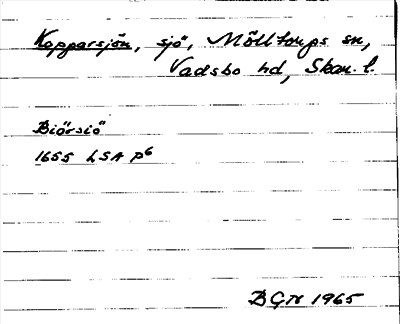 Kopparsjön, sjö, Mölltorps sn,
Vadsbo hd, Skar. l.
Biörsiö
1655 LSA P6
BGN 1965